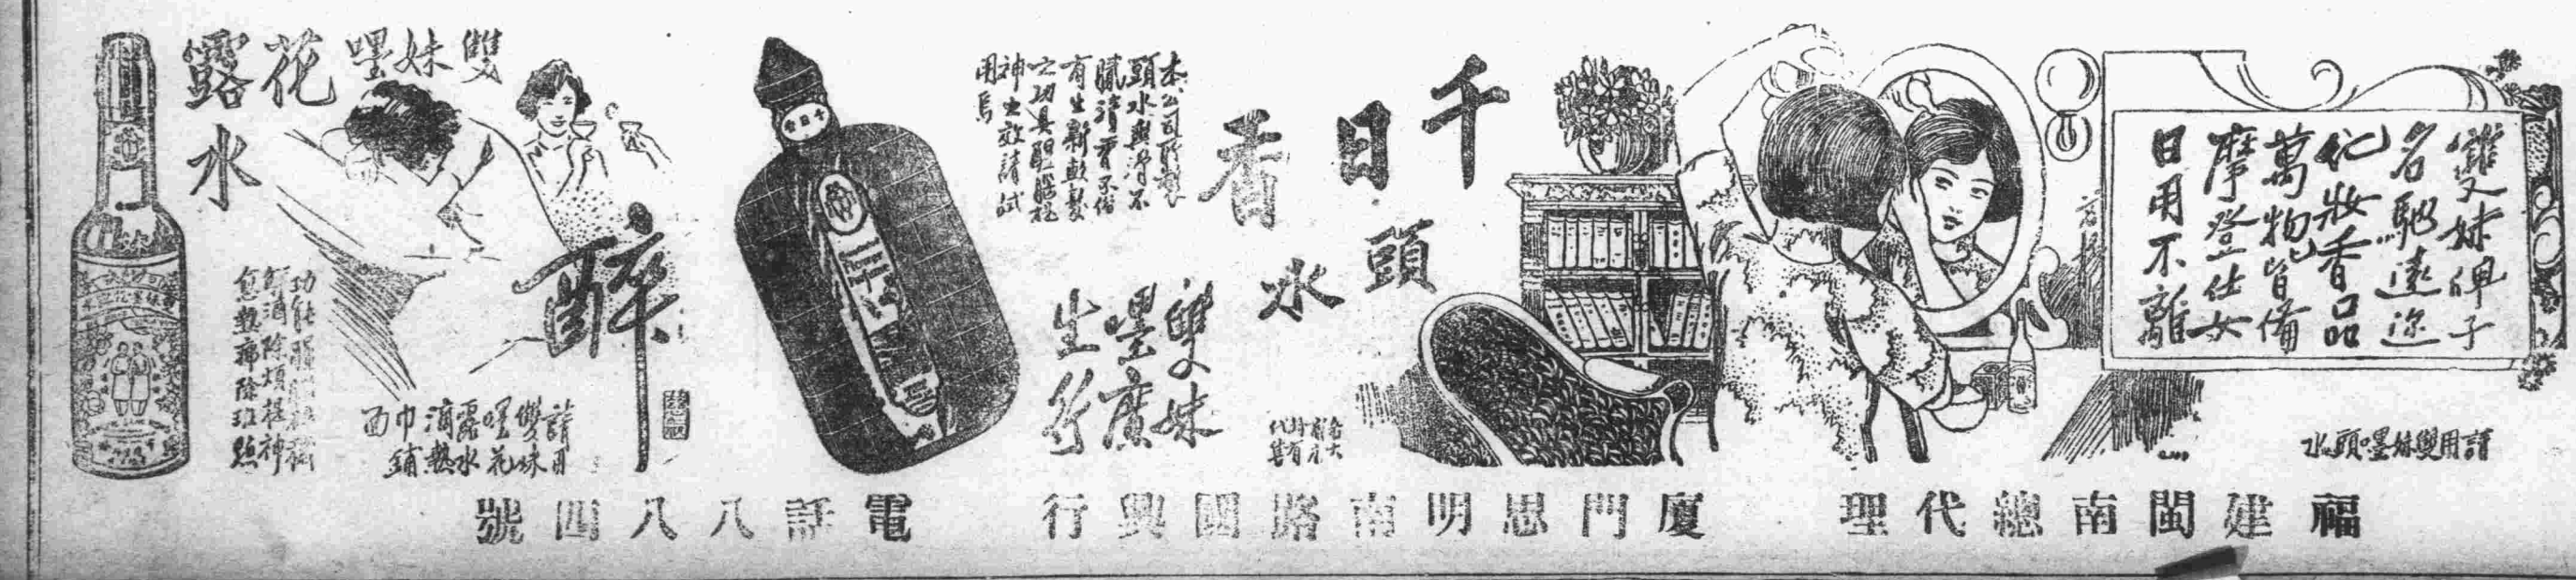 雙妹俾子
名馳遠迩
化妝香品
萬物皆備
摩登仕女
日用不離
請用雙妹嘜頭水
千日香
頭水
本公司所製
頭水與滑不
膩清香不俗
有生新軟髮
之功具醒腦提
神之效請試
用焉
雙妹
嘜廣
生行
各大
均有
代售
雙妹嘜花露水
醉
功能
消除煩
除斑
請用
雙妹
嘜花
露水
滴熱
巾鋪
面
福建閩南總代理
廈門思明南路國興行
電話八八四號